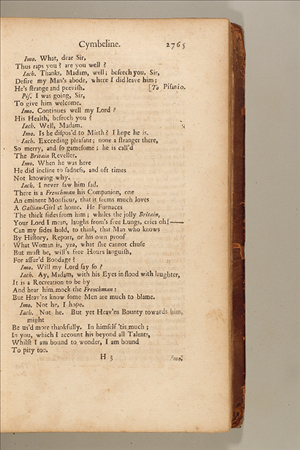 Cymbeline. 2765
Imo. What, dear Sir,
Thus raps you? are you well?
Iach. Thanks, Madam, well; beseech you, Sir,
Desire my Man's abode, where I did leave him;
He's strange and peevish. [To Pisanio.
Pis. I was going, Sir,
To give him welcome.
Imo. Continues well my Lord?
His Health, beseech you?
Iach. Well, Madam.
Imo. Is he dispos'd to Mirth? I hope he is.
Iach. Exceeding pleasant; none a stranger there,
So merry, and so gamesome; he is call'd
The Britain Reveller.
Imo. When he was here
He did incline to sadness, and oft times
Not knowing why.
Iach. I never saw him sad.
There is a Frenchman his Companion, one
An eminent Monsieur, that it seems much loves
A Gallian Girl at home. He Furnaces
The thick sides from him; whiles the jolly Britain,
Your Lord I mean, laughs from's free Lungs, cries oh!——
Can my sides hold, to think, that Man who knows
By History, Report, or his own proof
What Woman is, yea, what she cannot chuse
But must be, will's free Hours languish,
For assur'd Bondage?
Imo. Will my Lord say so?
Iach. Ay, Madam, with his Eyes in flood with laughter,
It is a Recreation to be by
And hear him mock the Frenchman:
But Heav'ns know some Men are much to blame.
Imo. Not he, I hope.
Iach. Not he. But yet Heav'ns Bounty towards him,
might
Be us'd more thankfully. In himself 'tis much;
In you, which I account his beyond all Talents,
Whilst I am bound to wonder, I am bound
To pity too.
H 5 Imo.